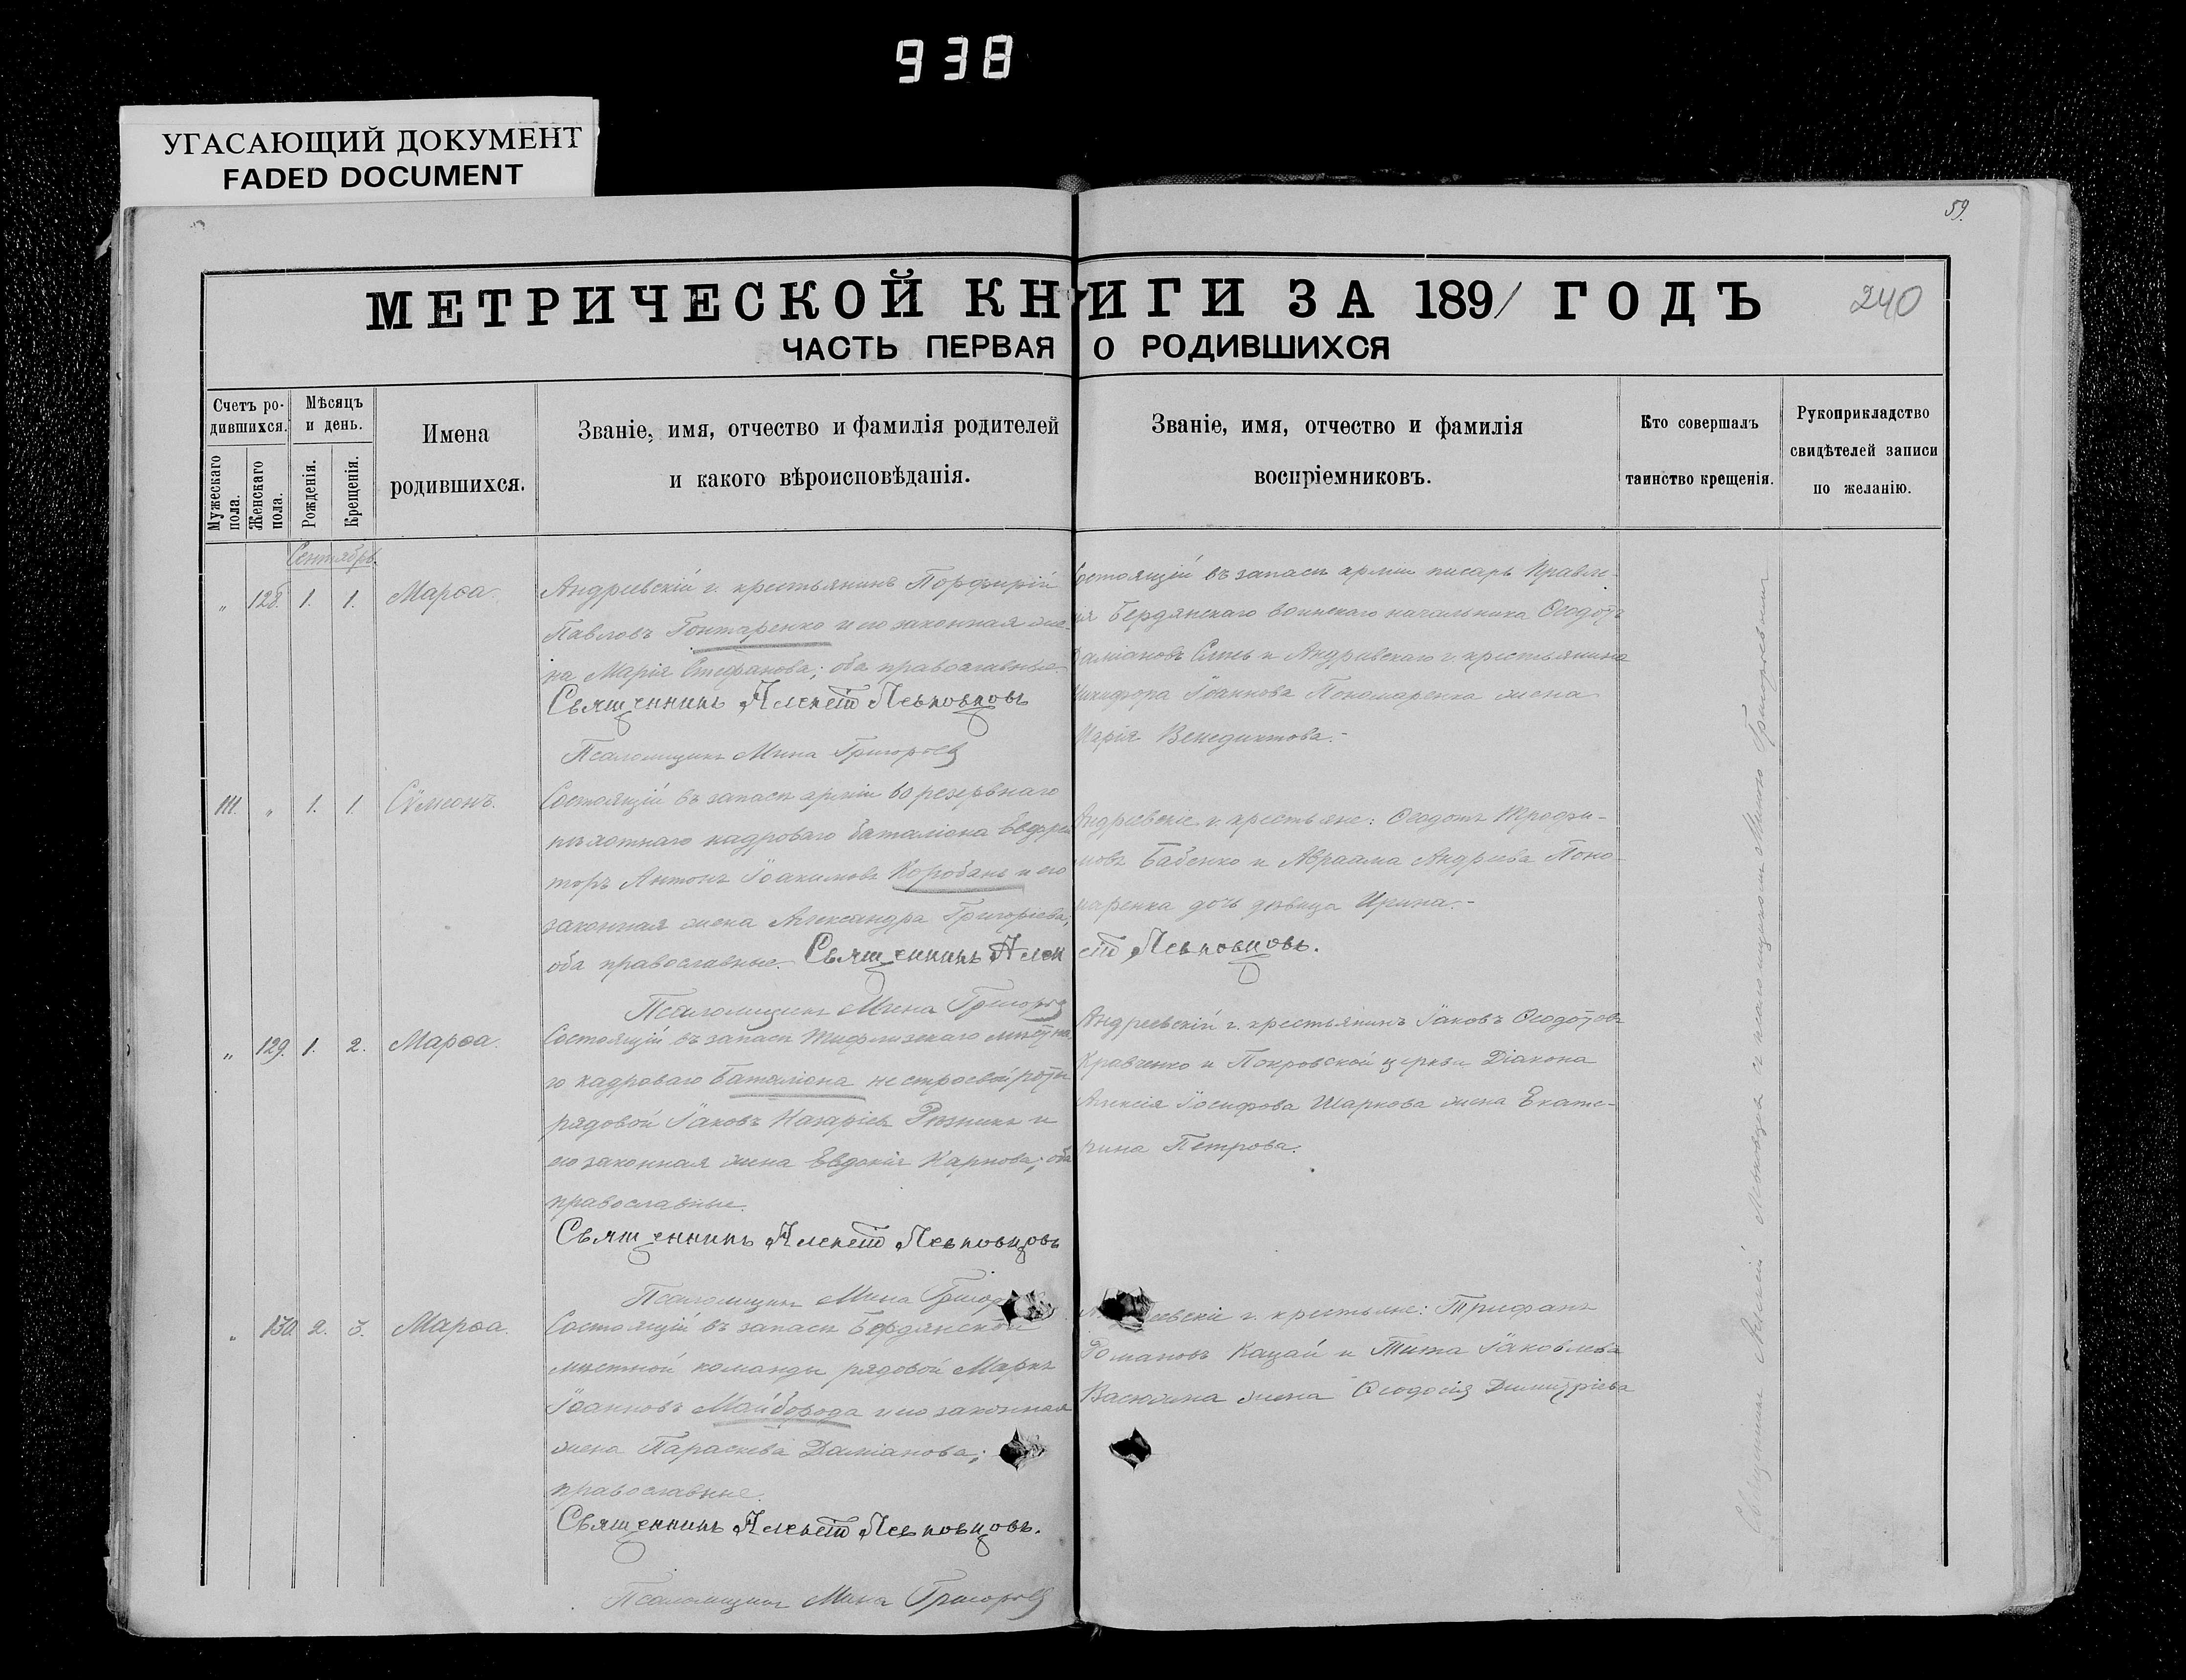 938
УГАСАЮЩИЙ ДОКУМЕНТ
FADED DOCUMENT
59.
МЕТРИЧЕСКОЙ КНИГИ ЗА 1891 ГОДЪ
240
ЧАСТЬ ПЕРВАЯ О РОДИВШИХСЯ
Счетъ ро-
дившихся.
Мѣсяцъ
и день.
Мужескаго
пола.
Женскаго
пола.
Рожденія.
Крещенія.
Имена
родившихся.
Званіе, имя, отчество и фамилія родителей
и какого вѣроисповѣданія.
Званіе, имя, отчество и фамилія
воспріемниковъ.
Кто совершалъ
таинство крещенія.
Рукоприкладство
свидѣтелей записи
по желанію.
Сентябрь
" 128. 1. 1. Марѳа.
Андреевскій г. крестьянинъ Порфирій
Павловъ Гонтаренко и его законная же-
на Марія Стефанова; оба православные.
Священникъ Алексій Левковцовъ
Псаломщикъ Мина Григорьев
Состоящій въ запасѣ арміи писарь Правле-
нія Бердянскаго воинскаго начальника Ѳеодотъ
Даміановъ и Андреевскаго г. крестьянина
Никифора Іоаннова Пономаренка жена
Марія Венедиктова.-
111. " 1. 1. Сѵмеонъ.
Состоящій въ запасѣ арміи 60 резервнаго
пѣхотнаго кадроваго баталіона Ефрей
торъ Антонъ Іоакимовъ Коробань и его
законная жена Александра Григоріева,
оба православные. Священникъ Алексій Левковцовъ.
Псаломщикъ Мина Григорьев
Андреевскіе г. крестьяне: Ѳеодотъ Трофи-
мовъ Бабенко и Авраама Андреева Поно-
маренка дочь дѣвица Ирина.-
" 129. 1. 2. Марѳа.
Состоящій въ запасѣ Тифлизскаго мѣстна
го кадроваго баталіона нестроевой роты
рядовой Іаковъ Назаріевъ Рѣзникъ и
его законная жена Евдокія Карпова; оба
православные.
Священникъ Алексій Левковцовъ
Псаломщикъ Мина Григор
Андреевскій г. крестьянинъ Іаковъ Ѳеодотовъ
Кравченко и Покровской церкви Діакона
Алексія Іосифова Шаркова жена Екате-
рина Петрова.
" 130. 2. 3. Марѳа.
Состоящій въ запасѣ Бердянской
мѣстной команды рядовой Маркъ
Іоанновъ Майборода и его законная
жена Параскева Даміанова;
православные.
Священникъ Алексій Левковцовъ.
Псаломщикъ Мина Григорьев
евскіе г. крестьяне: Трифанъ
Романовъ Кацай и Тита Іаковлева
Васюхна жена Ѳеодосія Димитріева
Священникъ Алексій Левковцовъ съ псаломщикомъ Миною Григорьевымъ